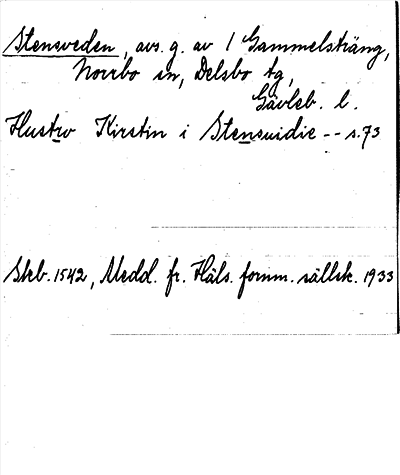 Stensveden, avs. g. av 1 Gammelsträng,
Norrbo sn, Delsbo tg,
Gävleb. l.
Hustrv Kirstin i Stensuidie -- s. 73
Skb. 1542, Medd. fr. Häls. fornm. sällsk. 1933